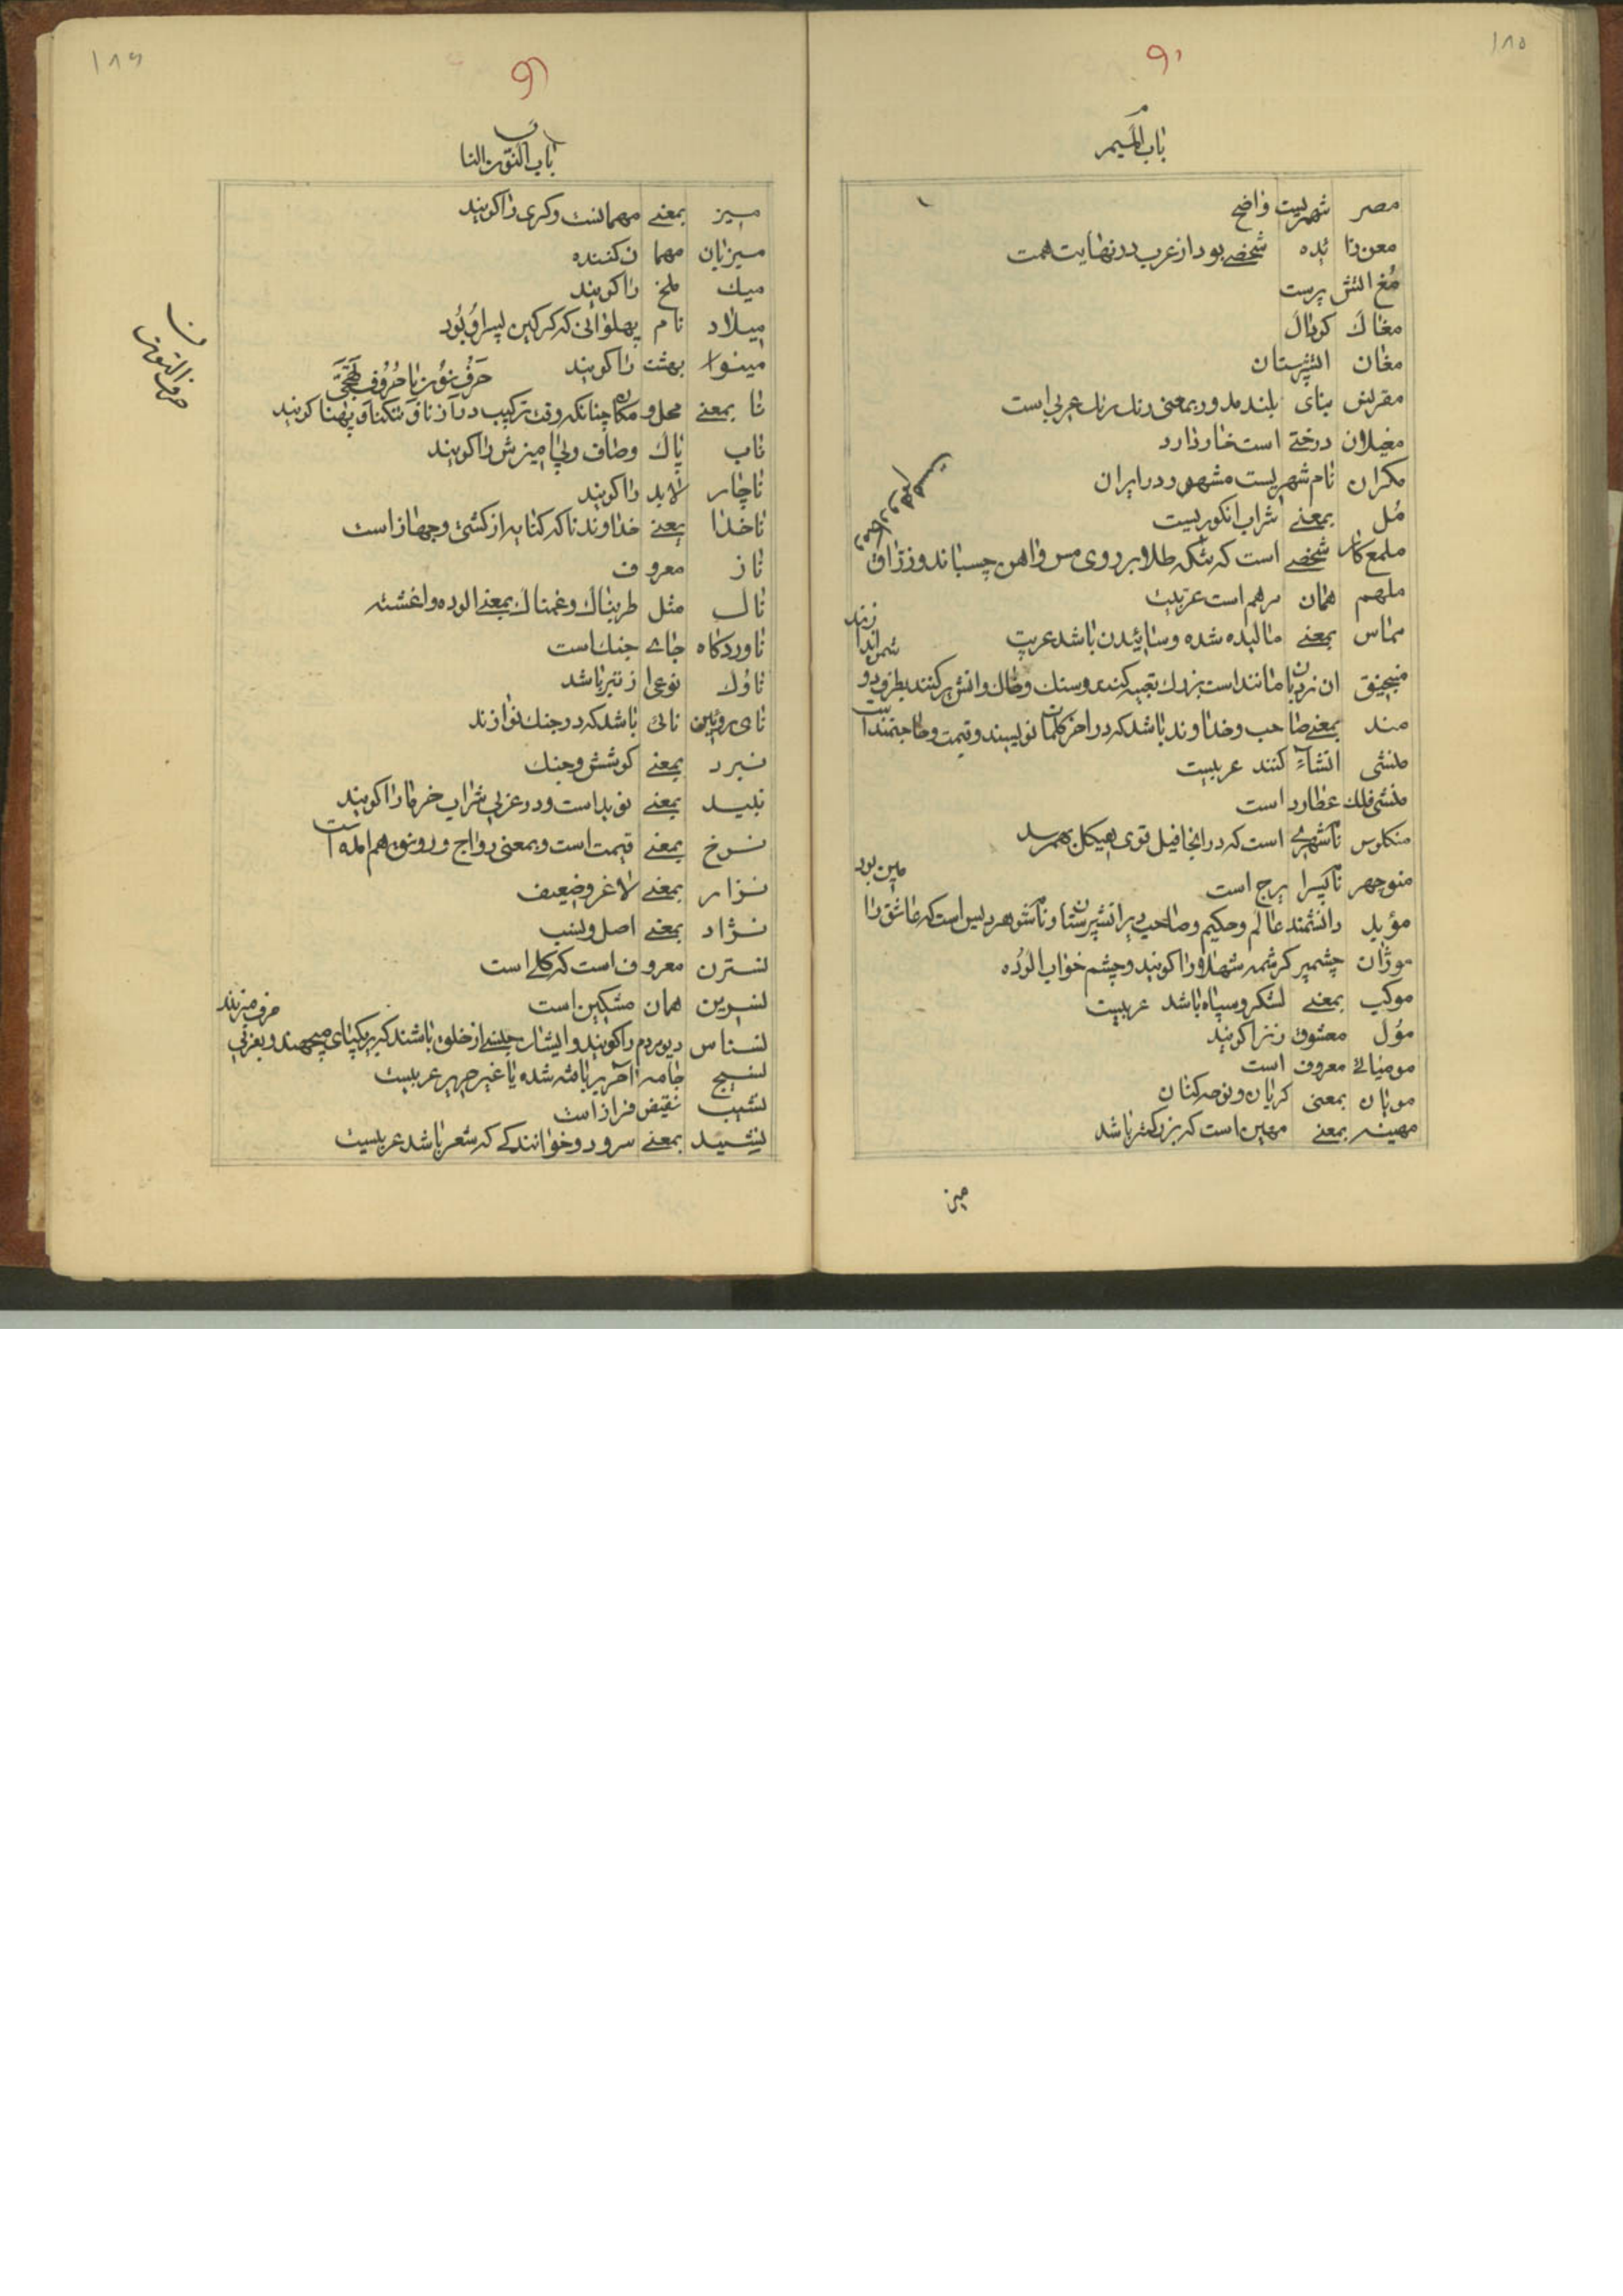 ۱۸۵
باب المیم
مصر شهریست واضح
معن زائده شخصی بود از عرب در نهایت همت
مُغ اتش پرست
مغاک کودال
مغان اتشپرستان
مقرنس بنای بلند مدور بمعنی رنک رنک عربی است
مغیلان درختی است خار دارد
مکران نام شهریست مشهور در ایران
مُل بمعنی شراب انکوریست
ملمع کار شخصی است که تنکه طلا بر روی مس و اهن چسباند و زراق
ملهم همان مرهم است عربیست
مماس بمعنی مالیده شده و سائیدن باشد عربی
منجنیق ان نردبان مانند است بزرک تعبیه کنند و سنک و خاک و اتش پر کنند بطرف
مند بمعنی صاحب و خداوند باشد که در اخر کلمات نویسند و قیمت و حاجتمند است
منشی انشاء کنند عربیست
منشی فلک عطارد است
منکلوس نام شهری است که در انجا فیل قوی هیکل بهم رسد
منوچهر نام پسر ایرج است
مؤبد دانشمند عالم و حکیم و صاحب دیر اتشپرستان و نام شوهر ویس است که عاشق را
موژان چشم پر کرشمه شهلا و را کویند و چشم خواب الوده
موکب بمعنی لشکر و سپاه باشد عربیست
مؤل معشوق زنرا کویند
مومیائی معروف است
مویان بمعنی کریان و نوحه کنان
مهینه بمعنی مهین است که بزرکتر باشد
میز
۱۸۶
باب النون النا
حرف النون
میز بمعنی مهمانست و کرسی را کویند
میزبان مهمان کننده
میک ملخ را کویند
میلاد نام پهلوانی که کرکین پسر او بُود
مینوا بهشت را کویند
حَرفُ نوُن با حُرُوف تهَجّی
نا بمعنی محل و مکان چنانکه وقت ترکیب درازنا و تنکنا و پهنا کویند
ناب پاک و صاف و بی امیزش را کویند
ناچار لابد را کویند
ناخدا یعنی خداوند ناکه کنایه از کشتی و جهاز است
ناز معروف
ناک مثل طربناک و غمناک بمعنی الوده و اغشته
ناوردکاه جای جنک است
ناوُک نوعی از تیر باشد
نای روئین نائی باشد که در جنک نوازند
نبرد بمعنی کوشش و جنک
نبید بمعنی نوید است و در عربی شراب خرما را کویند
نرخ بمعنی قیمت است و بمعنی رواج و رونق هم امده است
نزار بمعنی لاغر و ضعیف
نژاد بمعنی اصل و نسب
نسترن معروف است که کلی است
نسرین همان مشکین است
نسناس دیو مردم را کویند و ایشان جنسی از خلق باشند که بر یکپای میجهند و بعربی حرف میزنند
نسیج جامه حریر بافته شده یا غیر حریر عربیست
نشیب نقیض فراز است
نشید بمعنی سرود و خوانندکی که شعر باشد عربیست